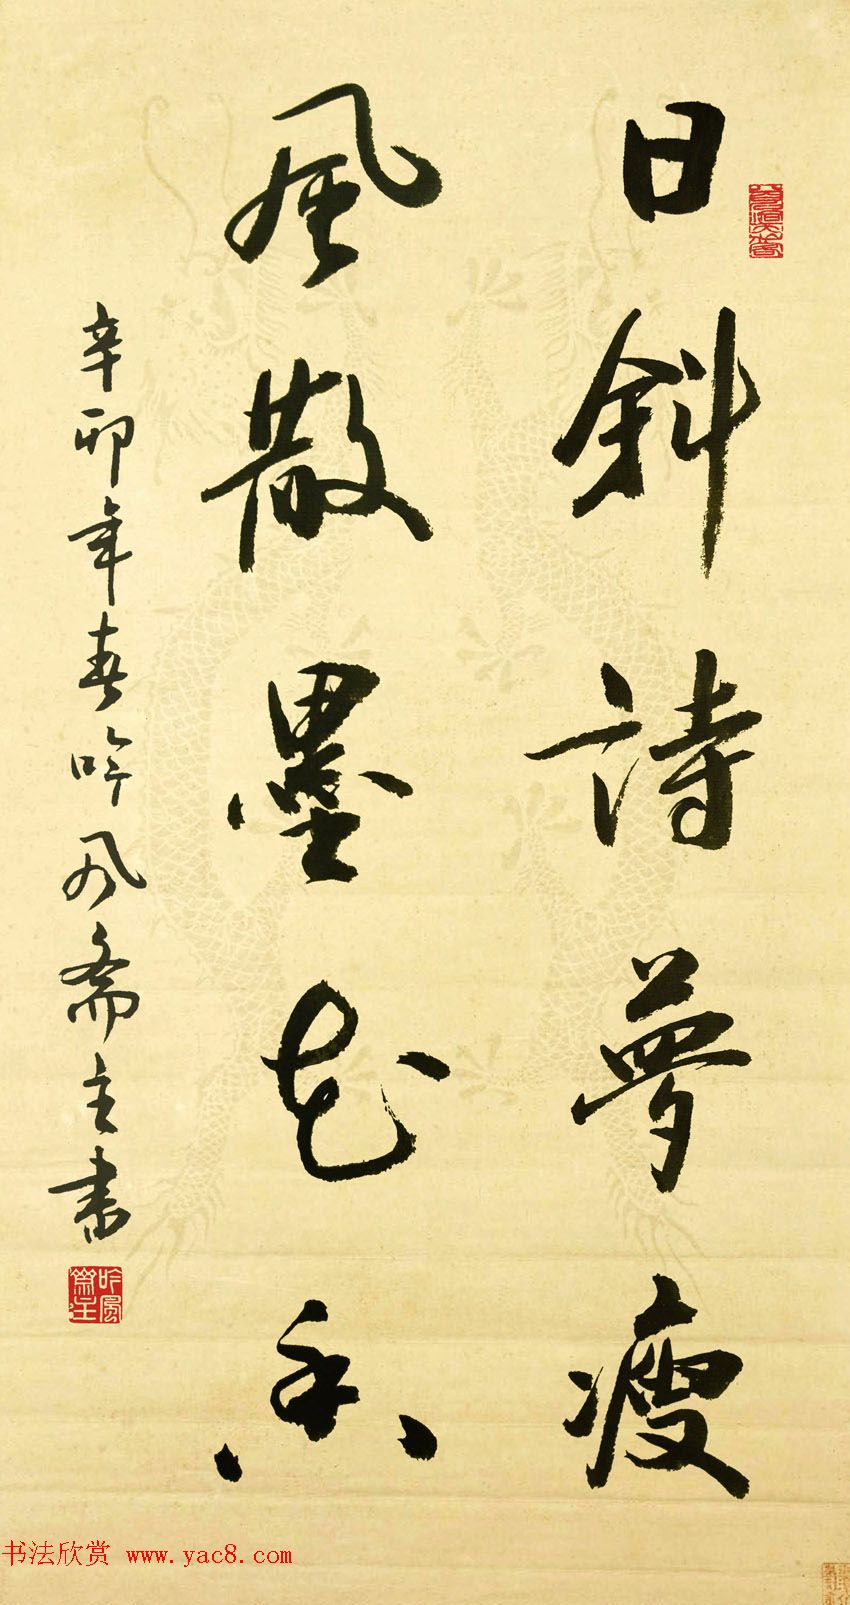 日斜詩夢瘦
風散墨花香
辛卯年春吟风斋主书
吟風齋主
书法欣赏 www.yac8.com